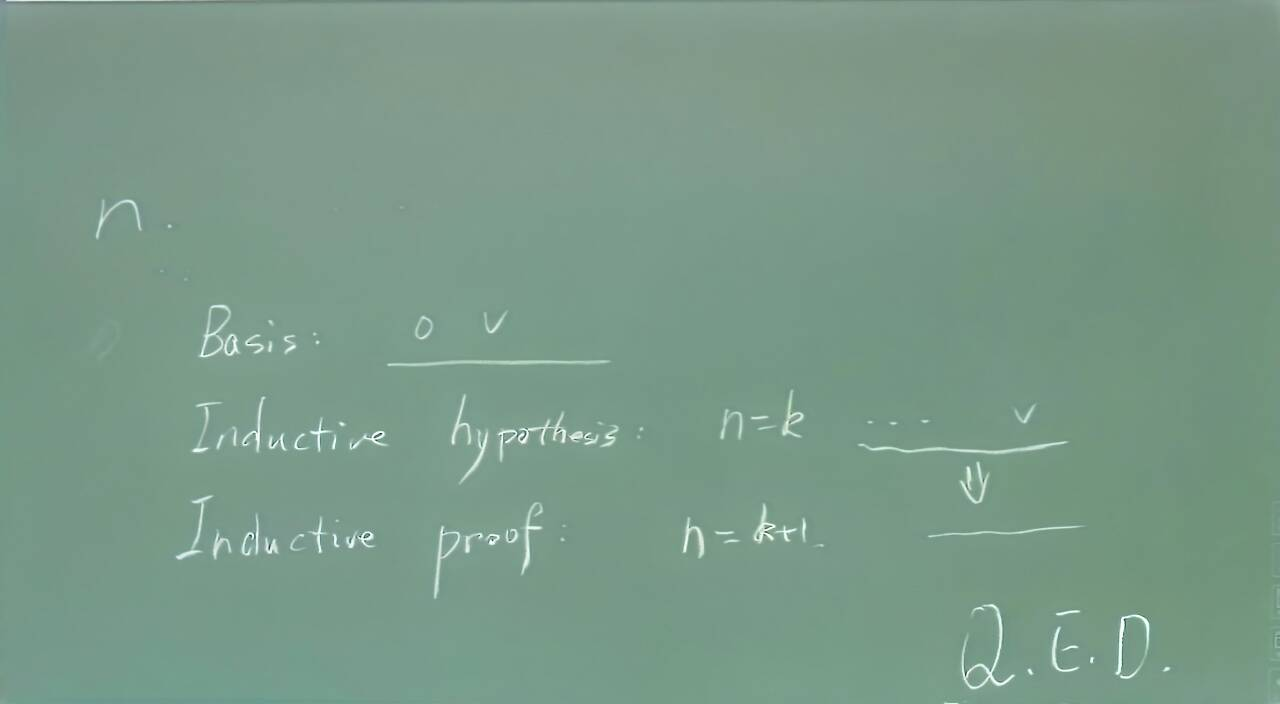 n.
Basis: 0 ∨
Inductive hypothesis: n=k .... ∨
⇓
Inductive proof: n=k+1.
Q.E.D.